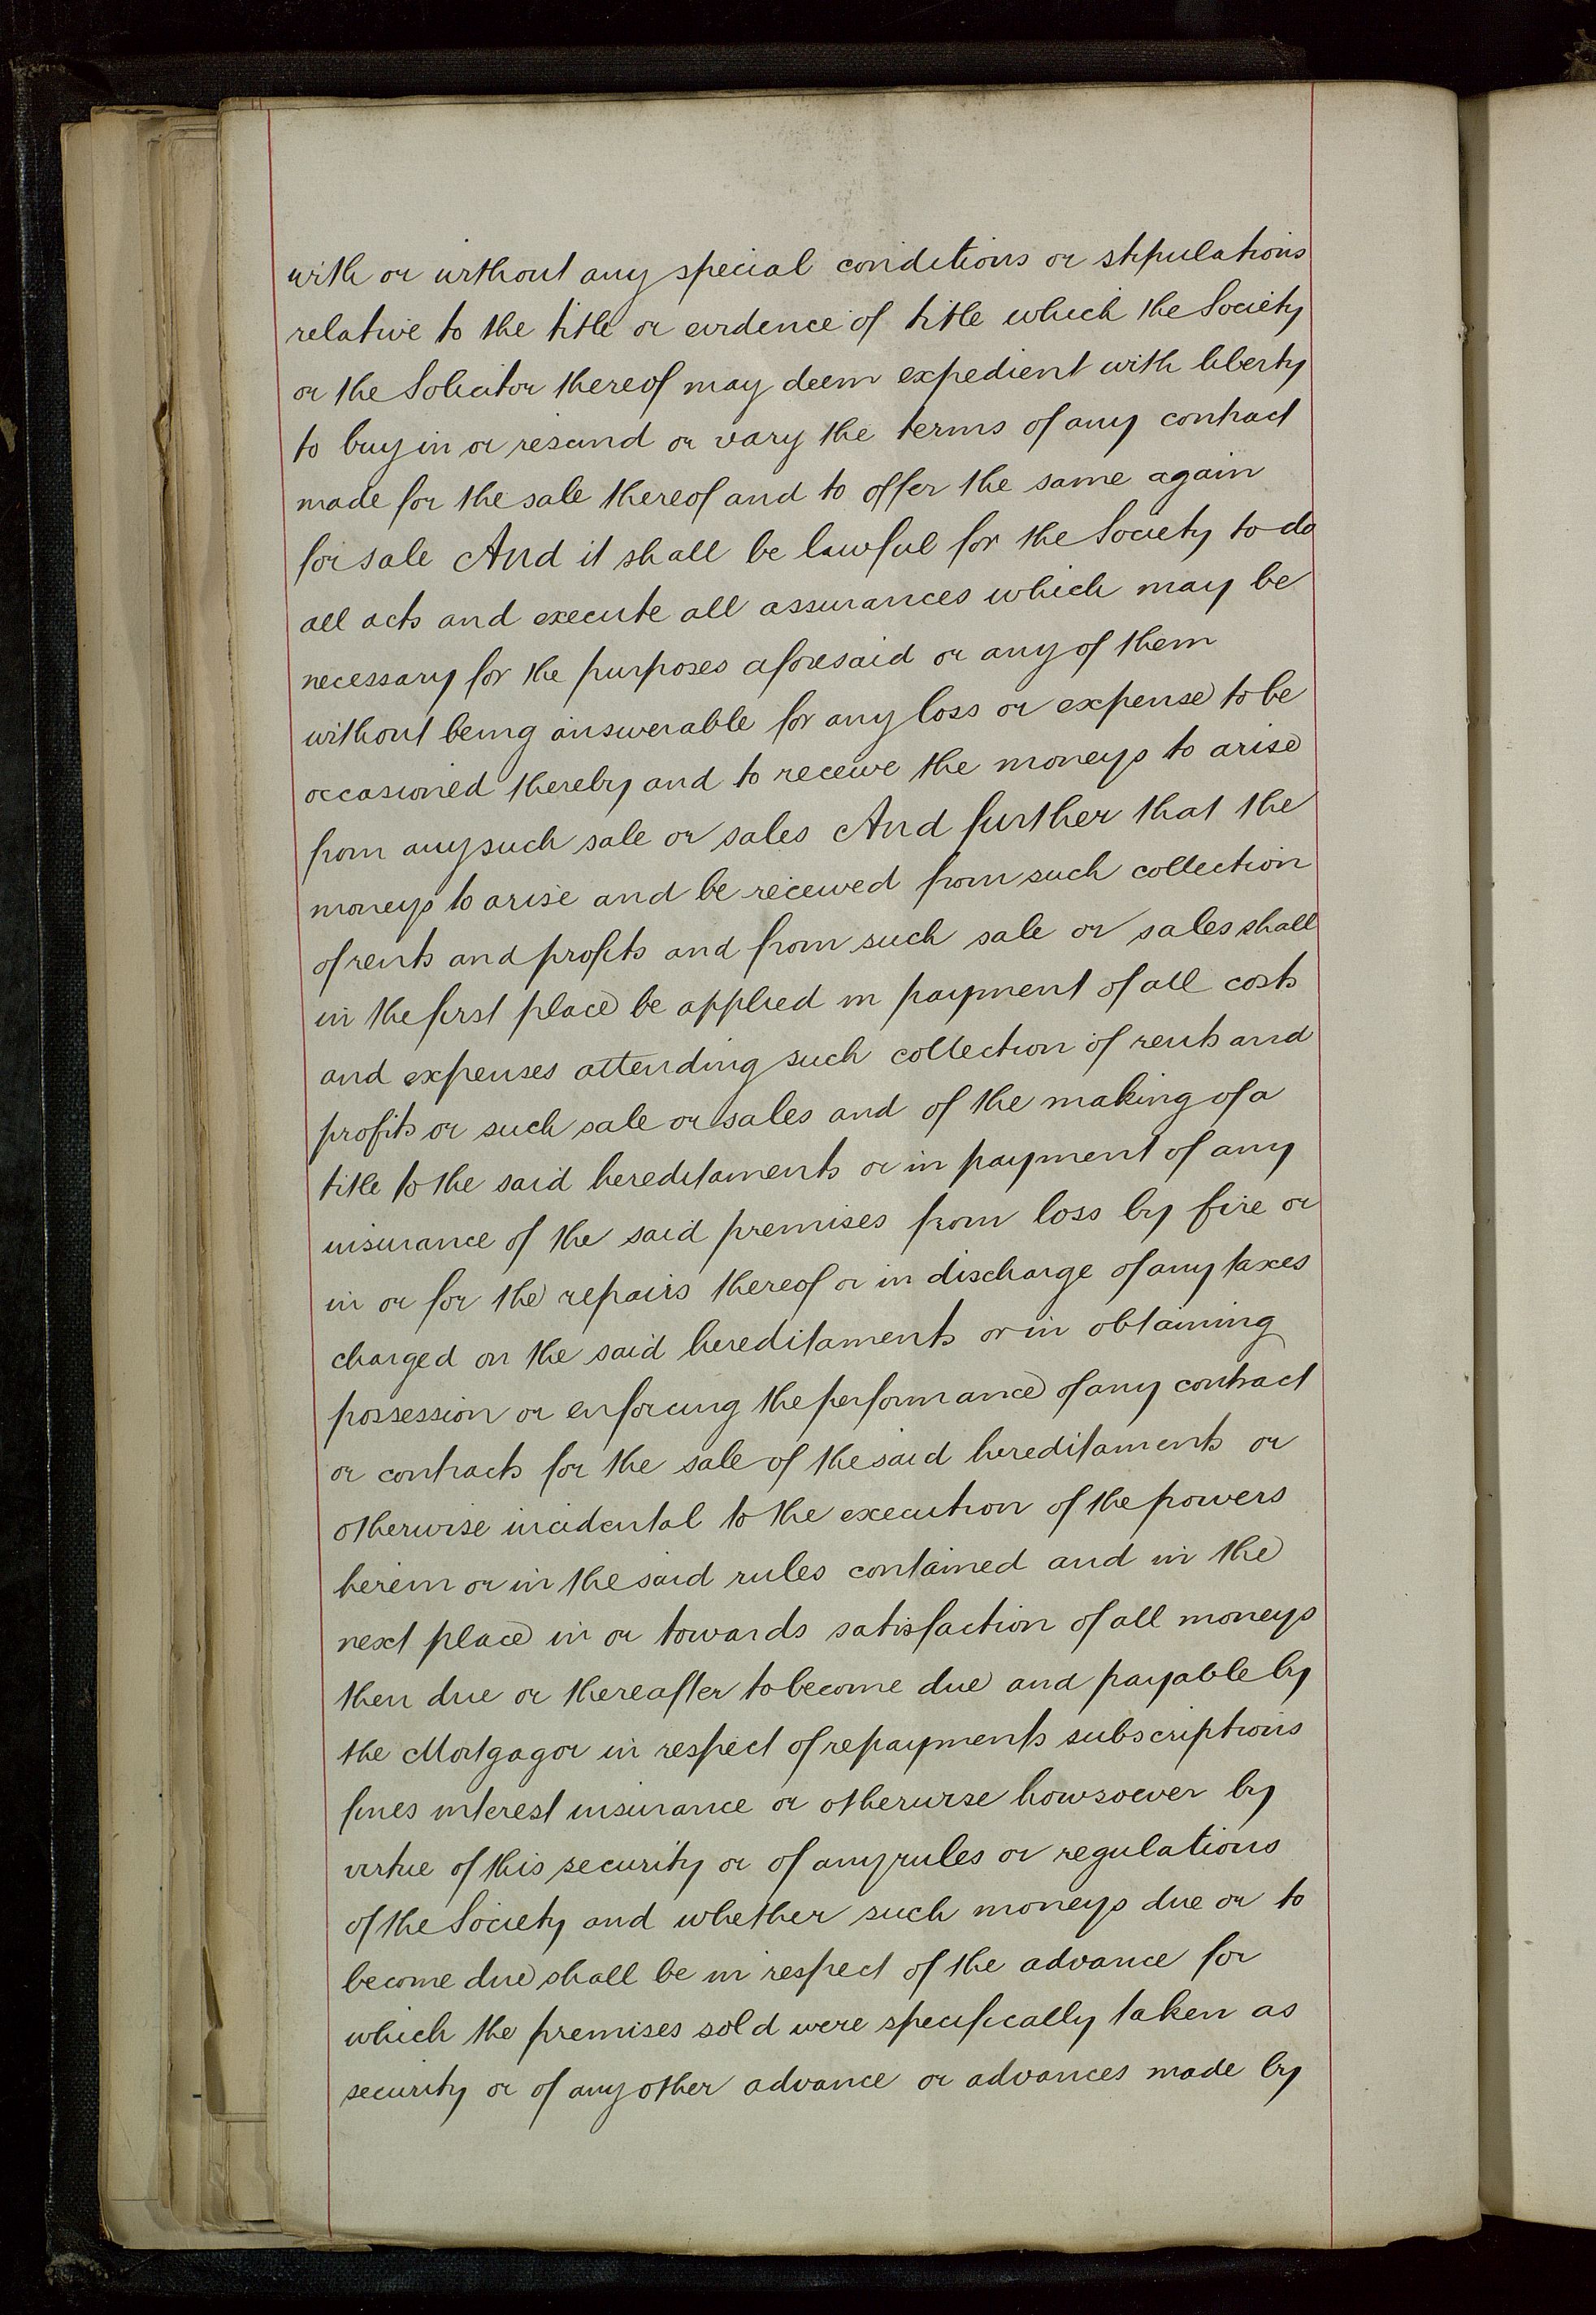 with or without any special conditions or stipulations
relative to the title or evidence of title which the Society
or the Solicitor thereof may deem expedient with liberty
to buy in or rescind or vary the terms of any contract
made for the sale thereof and to offer the same again
for sale And it shall be lawful for the Society to do
all acts and execute all assurances which may be
necessary for the purposes aforesaid or any of them
without being answerable for any loss or expense to be
occasioned thereby and to receive the moneys to arise
from any such sale or sales And further that the
moneys to arise and be received from such collection
of rents and profits and from such sale or sales shall
in the first place be applied in payment of all costs
and expenses attending such collection of rents and
profits or such sale or sales and of the making of a
title to the said hereditaments or in payment of any
insurance of the said premises from loss by fire or
in or for the repairs thereof or in discharge of any taxes
charged on the said hereditaments or in obtaining
possession or enforcing the performance of any contract
or contracts for the sale of the said hereditaments or
otherwise incidental to the execution of the powers
herein or in the said rules contained and in the
next place in or towards satisfaction of all moneys
then due or thereafter to become due and payable by
the Mortgagor in respect of repayments subscriptions
fines interest insurance or otherwise howsoever by
virtue of this security or of any rules or regulations
of the Society and whether such moneys due or to
become due shall be in respect of the advance for
which the premises sold were specifically taken as
security or of any other advance or advances made by